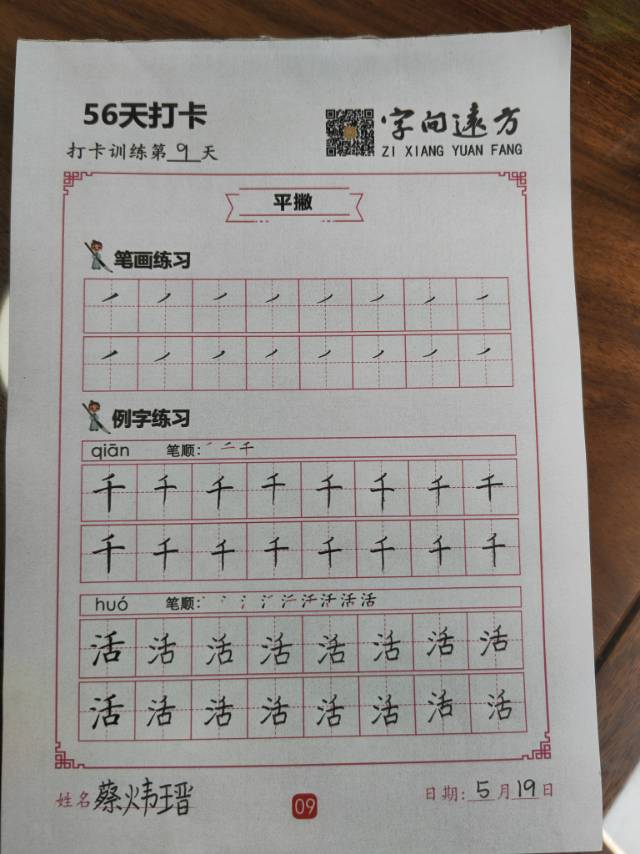 56天打卡
字向远方
ZI XIANG YUAN FANG
打卡训练第9天
平撇
笔画练习
例字练习
qiān 笔顺: 一 二 千
千 千 千 千 千 千 千 千
千 千 千 千 千 千 千 千
huó 笔顺: 活
活 活 活 活 活 活 活 活
活 活 活 活 活 活 活 活
姓名 蔡炜瑨
09
日期: 5月19日